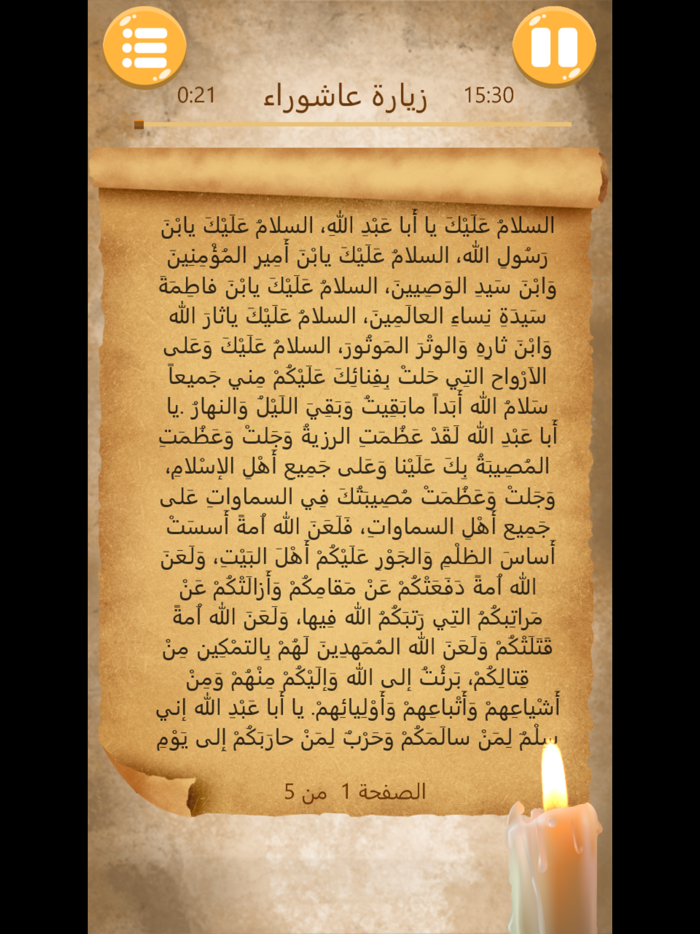 0:21 زيارة عاشوراء 15:30
السلامُ عَلَيْكَ يا أَبا عَبْدِ اللهِ، السلامُ عَلَيْكَ يابْنَ
رَسُولِ الله، السلامُ عَلَيْكَ يابْنَ أَمِيرِ المُؤْمِنِينَ
وَابْنَ سَيدِ الوَصِيينَ، السلامُ عَلَيْكَ يابْنَ فاطِمَةَ
سَيدَةِ نِساءِ العالَمِينَ، السلامُ عَلَيْكَ ياثارَ الله
وَابْنَ ثارِهِ وَالوِتْرَ المَوتُورَ، السلامُ عَلَيْكَ وَعَلى
الاَرْواحِ التِي حَلتْ بِفِنائِكَ عَلَيْكُمْ مِني جَميعاً
سَلامُ الله أَبَداً مابَقِيتُ وَبَقِيَ اللَيْلُ وَالنهارُ .يا
أَبا عَبْدِ الله لَقَدْ عَظُمَتِ الرزيةُ وَجَلتْ وَعَظُمَتِ
المُصِيبَةُ بِكَ عَلَيْنا وَعَلى جَمِيعِ أَهْلِ الإسْلامِ،
وَجَلتْ وَعَظُمَتْ مُصِيبَتُكَ فِي السماواتِ عَلى
جَمِيعِ أَهْلِ السماواتِ، فَلَعَنَ الله اُمةً أَسسَتْ
أَساسَ الظلْمِ وَالجَوْرِ عَلَيْكُمْ أَهْلَ البَيْتِ، وَلَعَنَ
الله اُمةً دَفَعَتْكُمْ عَنْ مَقامِكُمْ وَأَزالَتْكُمْ عَنْ
مَراتِبِكُمُ التِي رَتبَكُمُ الله فِيها، وَلَعَنَ الله اُمةً
قَتَلَتْكُمْ وَلَعَنَ الله المُمَهدِينَ لَهُمْ بِالتمْكِينِ مِنْ
قِتالِكُمْ، بَرِئْتُ إلى الله وَإِلَيْكُمْ مِنْهُمْ وَمِنْ
أَشْياعِهِمْ وَأَتْباعِهِمْ وَأَوْلِيائِهِمْ. يا أَبا عَبْدِ الله إني
سِلْمٌ لِمَنْ سالَمَكُمْ وَحَرْبٌ لِمَنْ حارَبَكُمْ إلى يَوْمِ
الصفحة 1 من 5